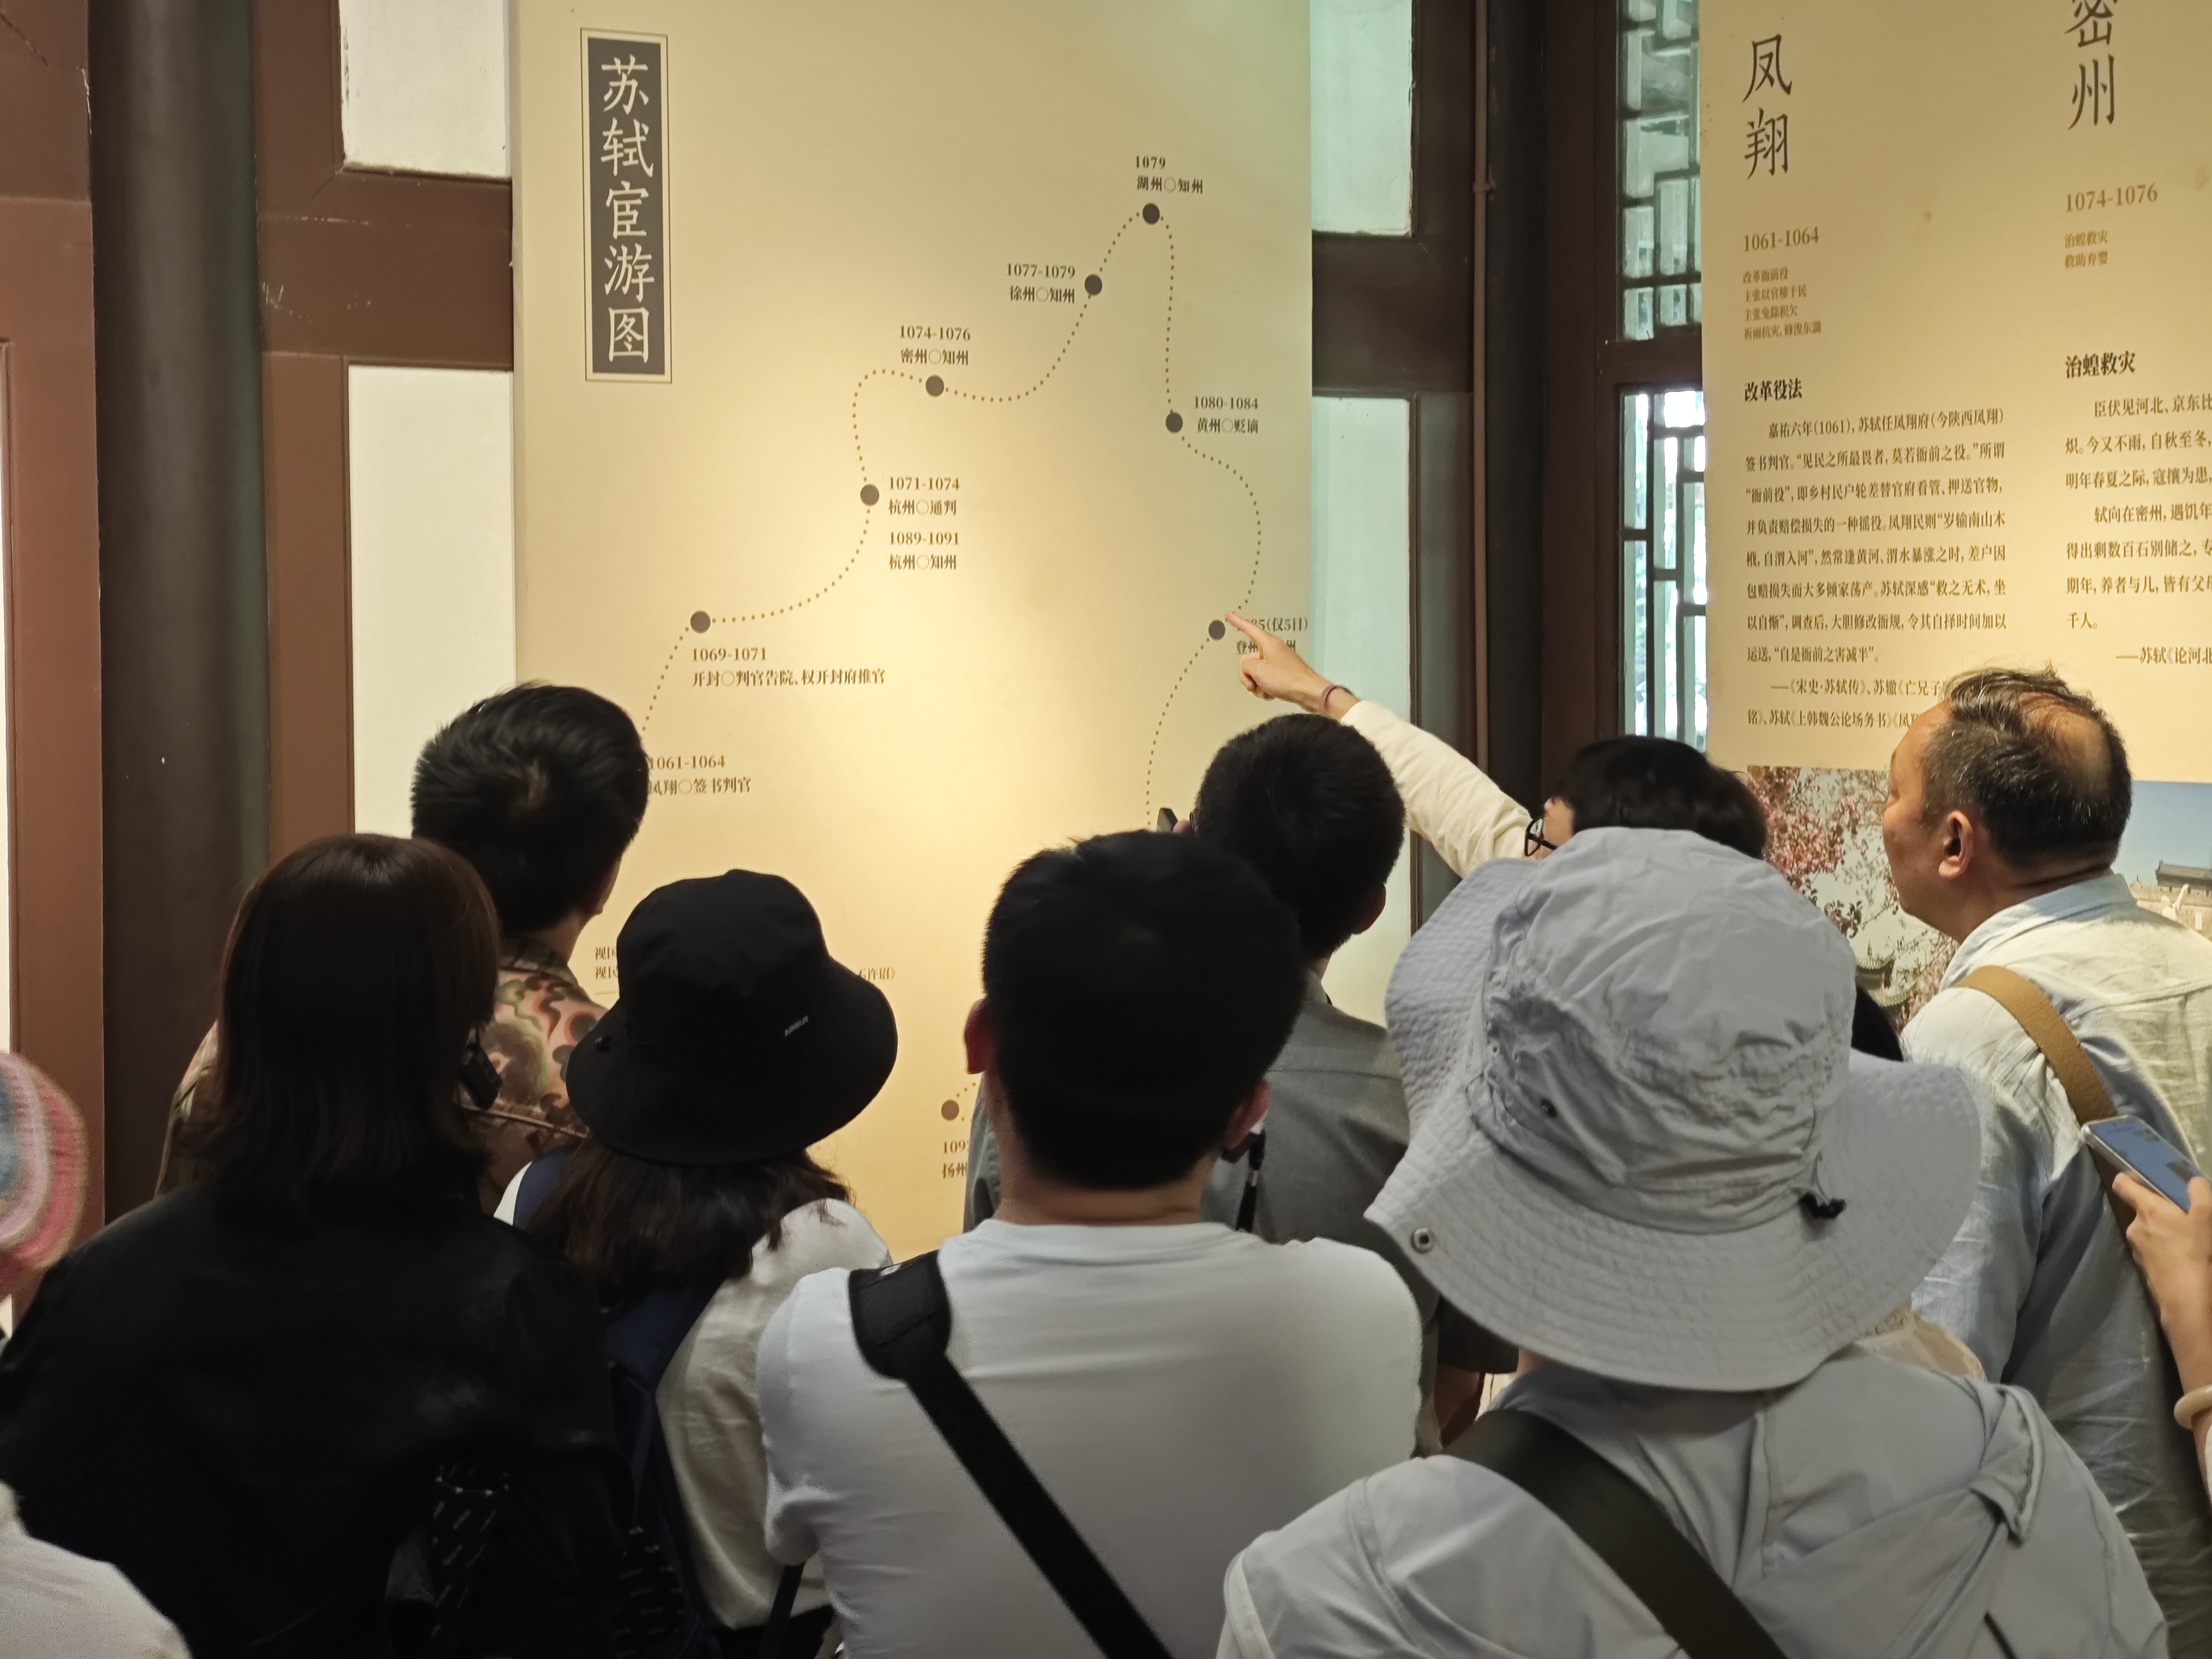 苏轼宦游图
1079
湖州○知州
1077-1079
徐州○知州
1074-1076
密州○知州
1080-1084
黄州○贬谪
1071-1074
杭州○通判
1089-1091
杭州○知州
85(仅5日)
登州 州
1069-1071
开封○判官告院、权开封府推官
1061-1064
凤翔○签书判官
视
视
石许诏》
109
扬州
凤翔
1061-1064
改革衙前役
主张以官榷于民
主张免除积欠
祈雨抗灾, 修浚东湖
改革役法
嘉祐六年(1061), 苏轼任凤翔府(今陕西凤翔)
签书判官。“见民之所最畏者, 莫若衙前之役。”所谓
“衙前役”, 即乡村民户轮差替官府看管、押送官物,
并负责赔偿损失的一种徭役。凤翔民则“岁输南山木
栰, 自渭入河”, 然常逢黄河、渭水暴涨之时, 差户因
包赔损失而大多倾家荡产。苏轼深感“救之无术, 坐
以自惭”, 调查后, 大胆修改衙规, 令其自择时间加以
运送, “自是衙前之害减半”。
——《宋史·苏轼传》、苏辙《亡兄子
铭》、苏轼《上韩魏公论场务书》《凤
密州
1074-1076
治蝗救灾
救助弃婴
治蝗救灾
臣伏见河北、京东比
炽。今又不雨, 自秋至冬,
明年春夏之际, 寇攘为患,
轼向在密州, 遇饥年
得出剩数百石别储之, 专
期年, 养者与儿, 皆有父母
千人。
——苏轼《论河北